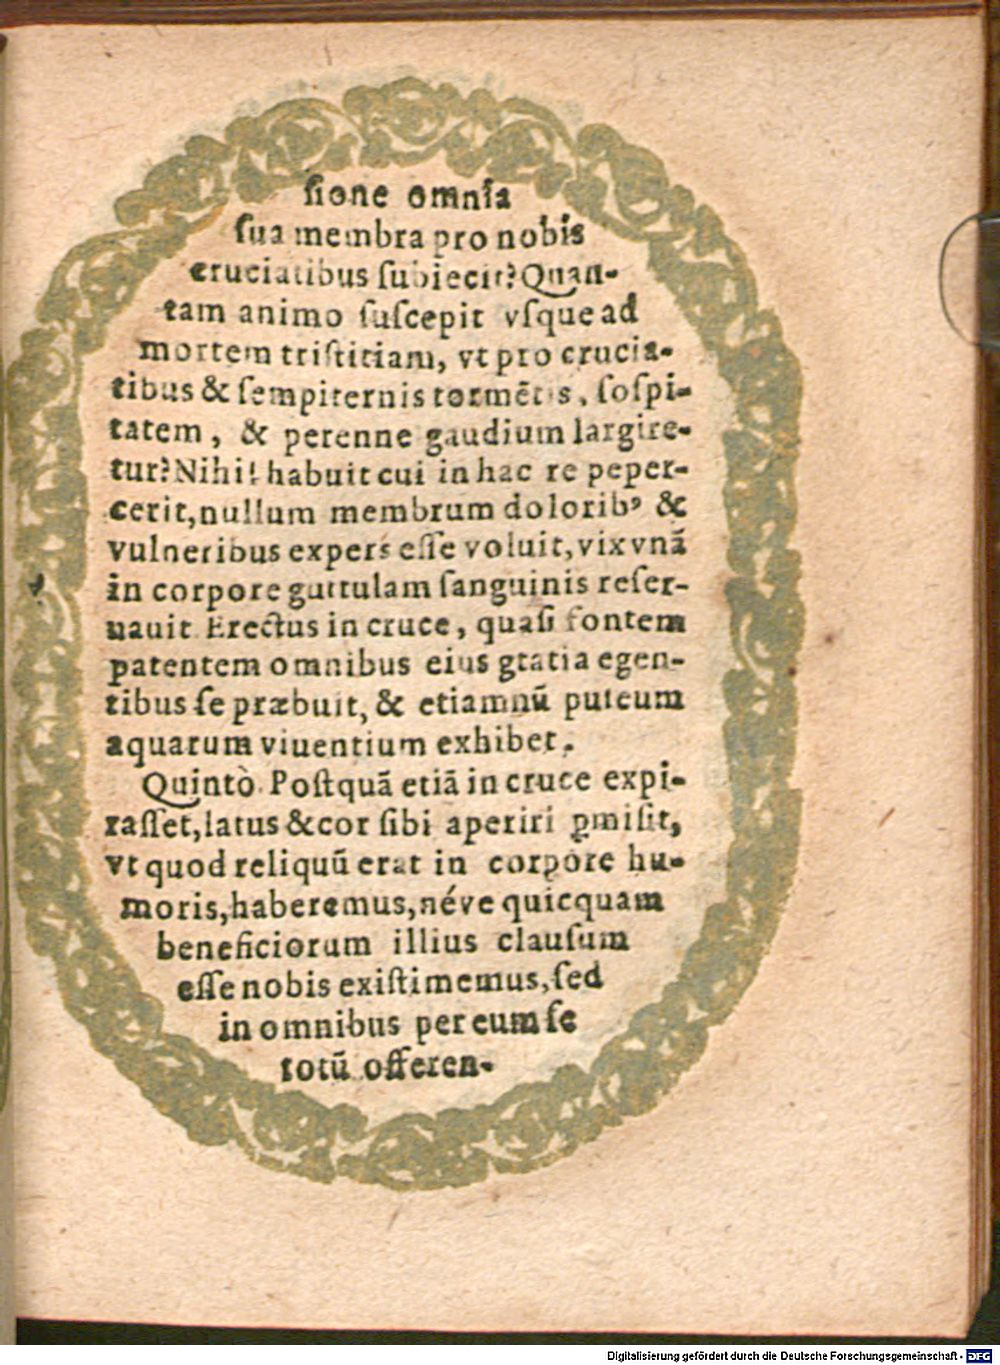 ſione omnia
ſua membra pro nobis
cruciatibus ſubiecit? Quan-
tam animo ſuſcepit vſque ad
mortem triſtitiam, vt pro crucia-
tibus & ſempiternis tormētis, ſoſpi-
tatem, & perenne gaudium largire-
tur? Nihil habuit cui in hac re peper-
cerit, nullum membrum dolorib⁹ &
vulneribus expers eſſe voluit, vix vnā
in corpore guttulam ſanguinis reſer-
uauit. Erectus in cruce, quaſi fontem
patentem omnibus eius gtatia egen-
tibus ſe præbuit, & etiamnū puteum
aquarum viuentium exhibet.
Quintò. Poſtquā etiā in cruce expi-
raſſet, latus & cor ſibi aperiri ꝑmiſit,
vt quod reliquū erat in corpore hu-
moris, haberemus, néve quicquam
beneficiorum illius clauſum
eſſe nobis exiſtimemus, ſed
in omnibus per eum ſe
totū offeren-
Digitalisierung gefördert durch die Deutsche Forschungsgemeinschaft - DFG